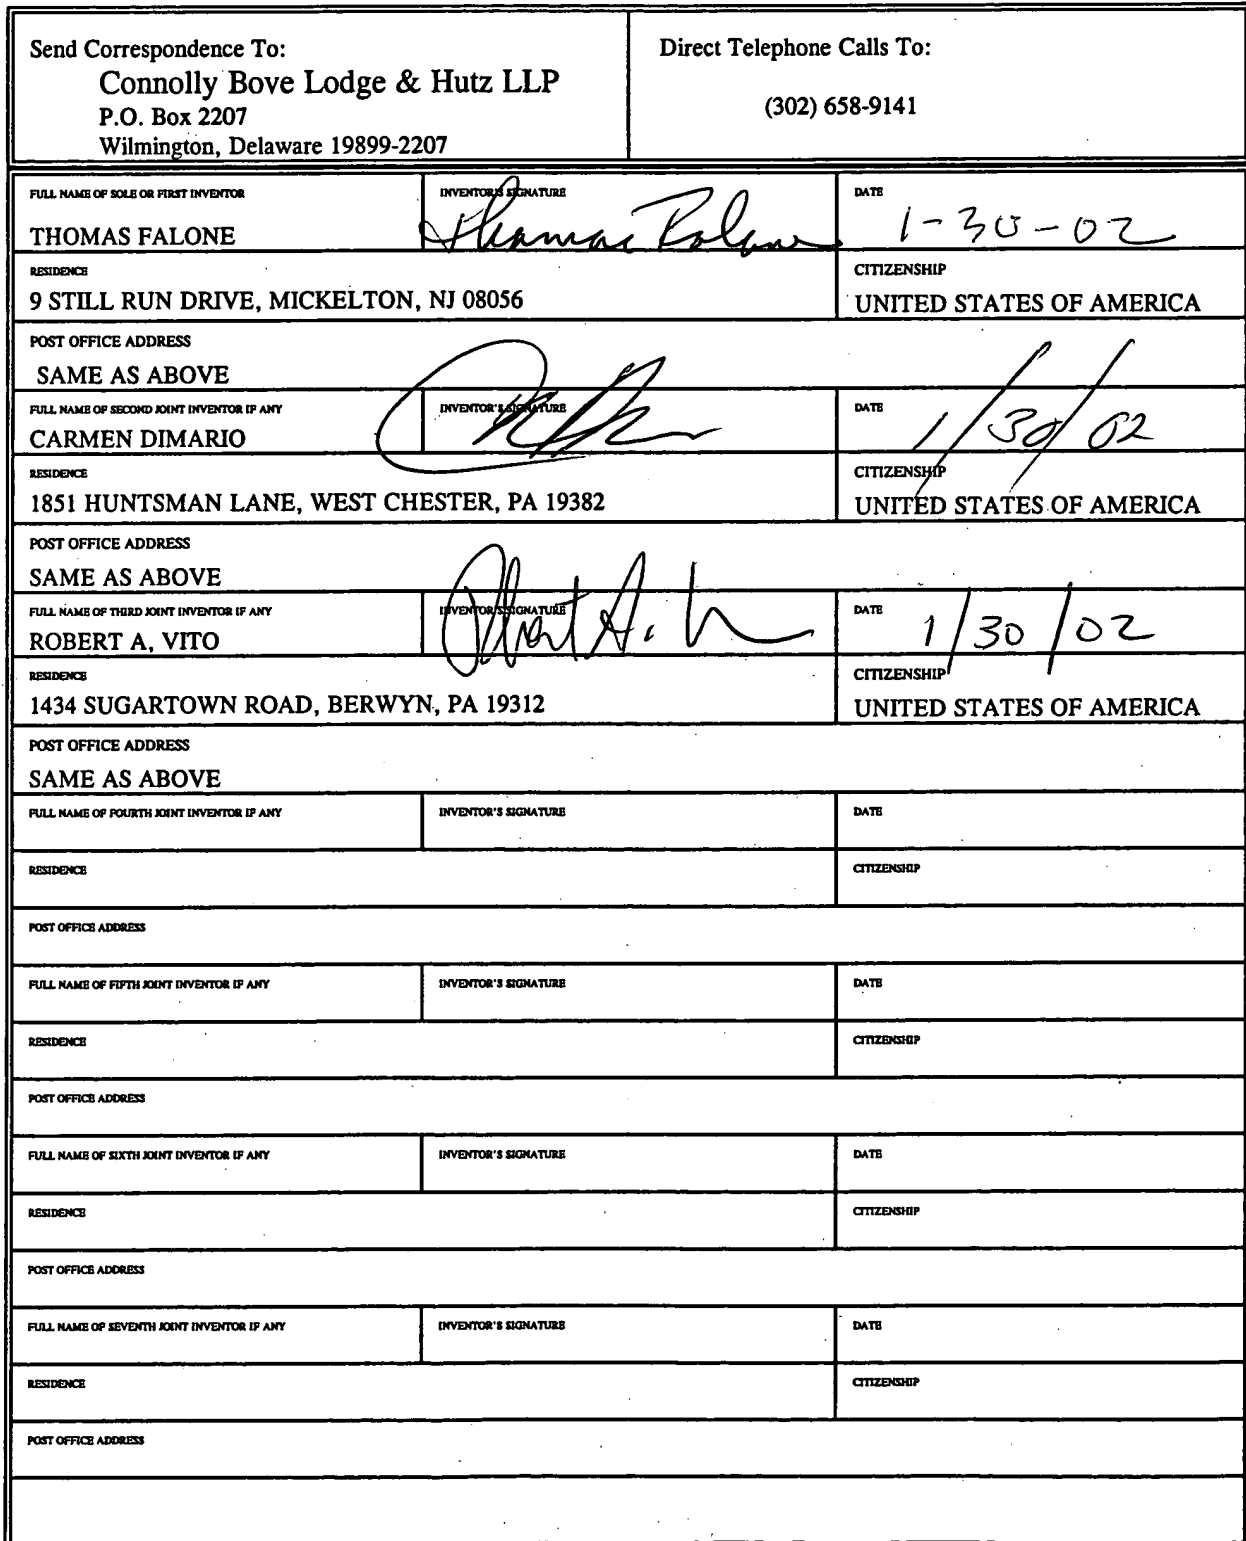 Send Correspondence To:
Connolly Bove Lodge & Hutz LLP
P.O. Box 2207
Wilmington, Delaware 19899-2207
Direct Telephone Calls To:
(302) 658-9141
FULL NAME OF SOLE OR FIRST INVENTOR INVENTOR'S SIGNATURE DATE
THOMAS FALONE Thomas Falone 1-30-02
RESIDENCE CITIZENSHIP
9 STILL RUN DRIVE, MICKELTON, NJ 08056 UNITED STATES OF AMERICA
POST OFFICE ADDRESS
SAME AS ABOVE
FULL NAME OF SECOND JOINT INVENTOR IF ANY INVENTOR'S SIGNATURE DATE
CARMEN DIMARIO 1/30/02
RESIDENCE CITIZENSHIP
1851 HUNTSMAN LANE, WEST CHESTER, PA 19382 UNITED STATES OF AMERICA
POST OFFICE ADDRESS
SAME AS ABOVE
FULL NAME OF THIRD JOINT INVENTOR IF ANY INVENTOR'S SIGNATURE DATE
ROBERT A, VITO Robert A. 1/30/02
RESIDENCE CITIZENSHIP
1434 SUGARTOWN ROAD, BERWYN, PA 19312 UNITED STATES OF AMERICA
POST OFFICE ADDRESS
SAME AS ABOVE
FULL NAME OF FOURTH JOINT INVENTOR IF ANY INVENTOR'S SIGNATURE DATE
RESIDENCE CITIZENSHIP
POST OFFICE ADDRESS
FULL NAME OF FIFTH JOINT INVENTOR IF ANY INVENTOR'S SIGNATURE DATE
RESIDENCE CITIZENSHIP
POST OFFICE ADDRESS
FULL NAME OF SIXTH JOINT INVENTOR IF ANY INVENTOR'S SIGNATURE DATE
RESIDENCE CITIZENSHIP
POST OFFICE ADDRESS
FULL NAME OF SEVENTH JOINT INVENTOR IF ANY INVENTOR'S SIGNATURE DATE
RESIDENCE CITIZENSHIP
POST OFFICE ADDRESS